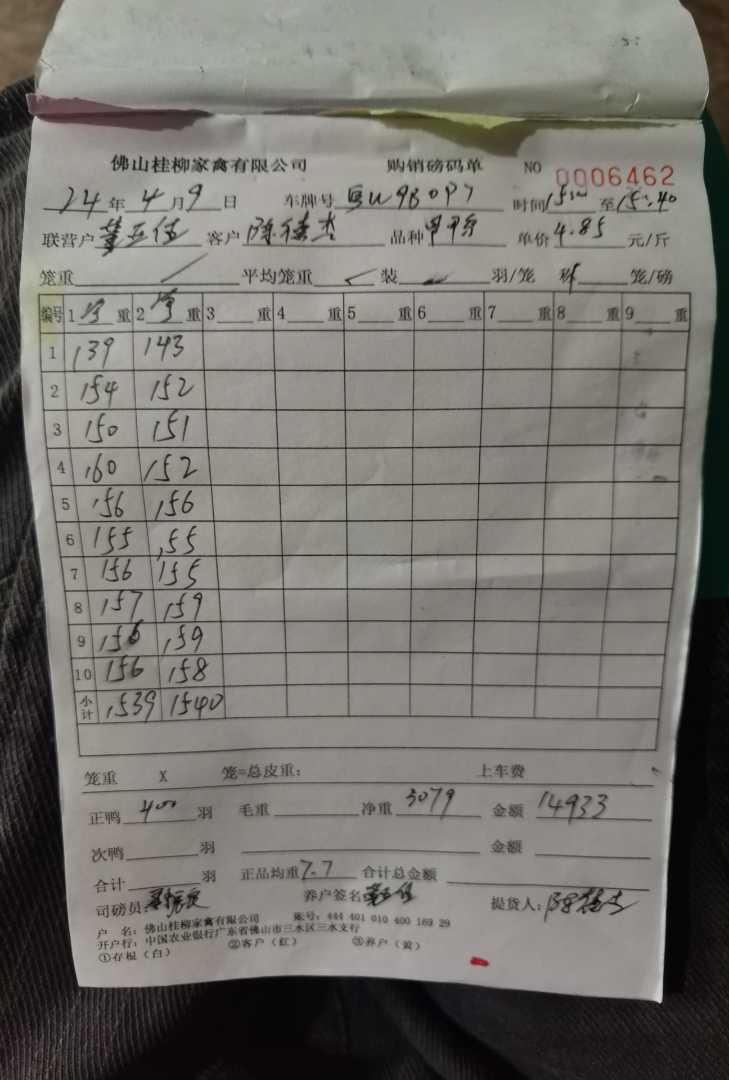 佛山桂柳家禽有限公司 购销磅码单 NO 0006462
24年4月9日 车牌号 时间15:00至15:40
联营户 客户 品种 单价4.85元/斤
笼重 平均笼重 装 羽/笼 称 笼/磅
编号 1净重 2净重 3 重 4 重 5 重 6 重 7 重 8 重 9 重
1 139 143
2 154 152
3 150 151
4 160 152
5 156 156
6 155 155
7 156 155
8 157 159
9 156 159
10 156 158
小计 1539 1540
笼重 X 笼=总皮重: 上车费
正鸭400羽 毛重 净重3079 金额14933
次鸭 羽 金额
合计 羽 正品均重7.7 合计总金额
司磅员 养户签名 提货人:
户 名: 佛山桂柳家禽有限公司 账号: 444 401 010 400 169 29
开户行: 中国农业银行广东省佛山市三水区三水支行
①存根(白) ②客户(红) ③养户(黄)